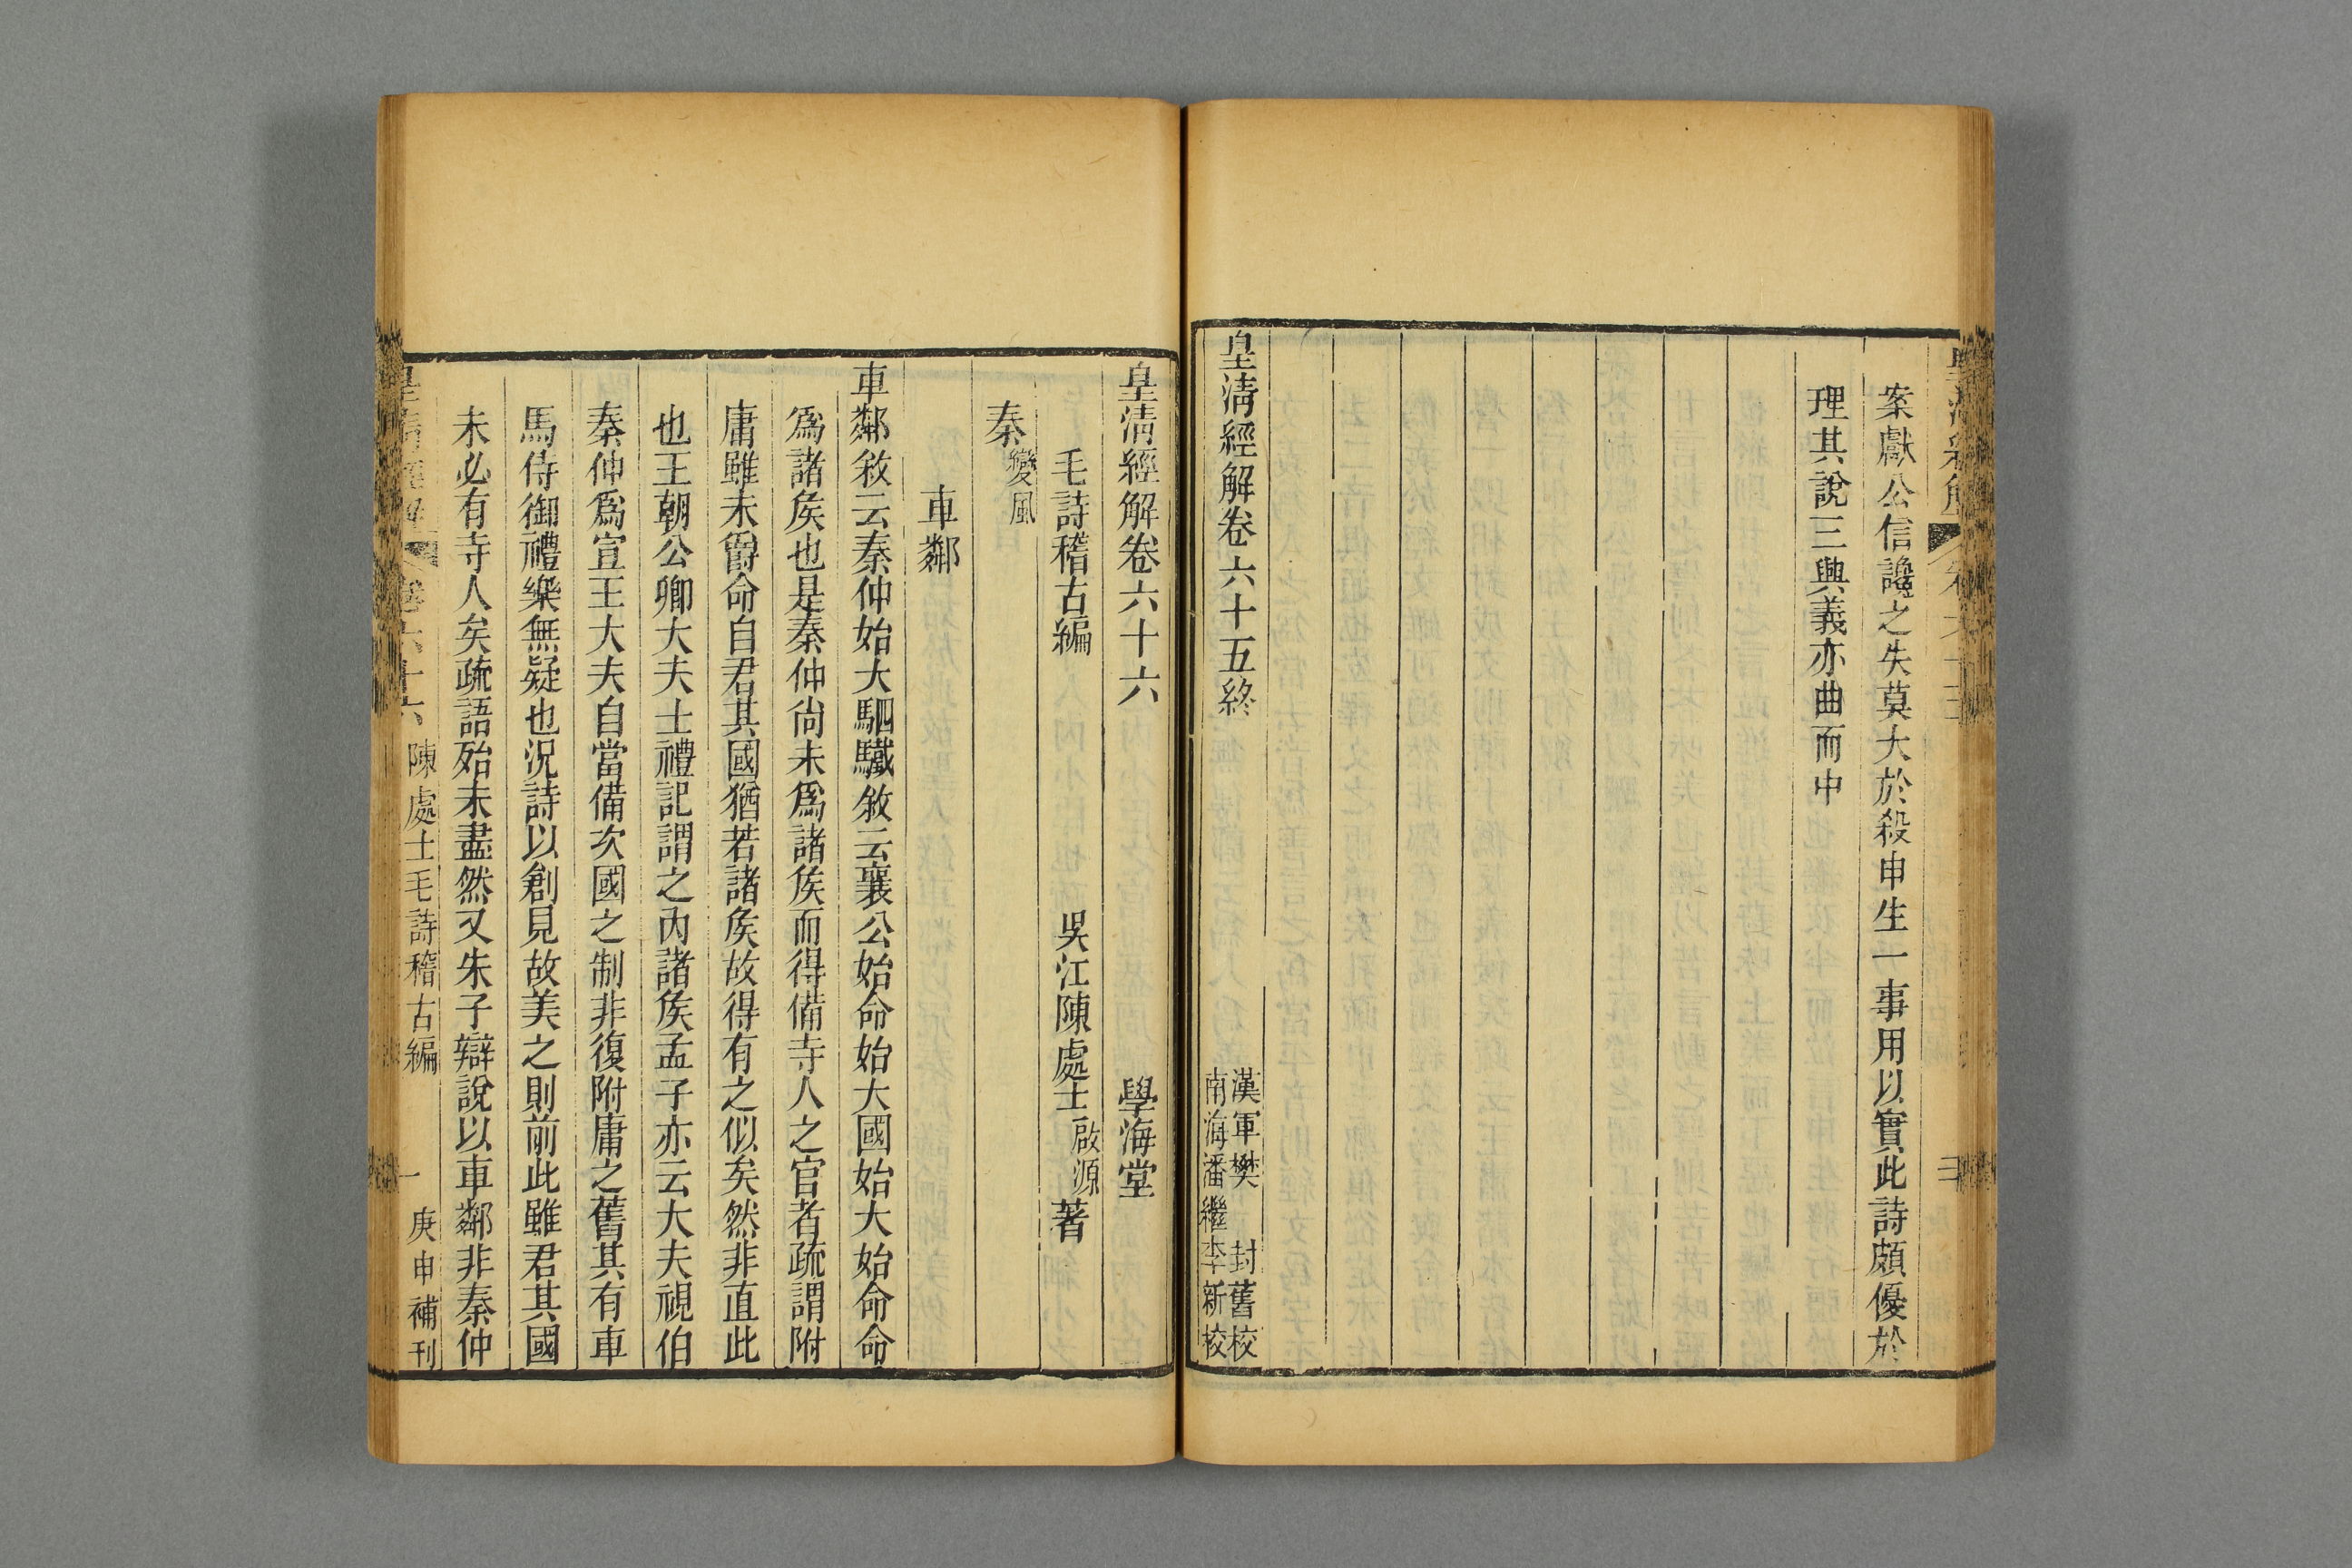 案獻公信讒之失莫大於殺申生一事用以實此詩頗優於
理其說三興義亦曲而中
皇清經解卷六十五終
漢軍樊封舊校
南海潘繼李新校
皇清經解卷六十六
學海堂
毛詩稽古編
吳江陳處士啟源著
秦變風
車鄰
車鄰敘云秦仲始大駟驖敘云襄公始命始大國始大始命命
爲諸矦也是秦仲尙未爲諸矦而得備寺人之官者疏謂附
庸雖未爵命自君其國猶若諸矦故得有之似矣然非直此
也王朝公卿大夫士禮記謂之內諸矦孟子亦云大夫視伯
秦仲爲宣王大夫自當備次國之制非復附庸之舊其有車
馬侍御禮樂無疑也況詩以創見故美之則前此雖君其國
未必有寺人矣疏語殆未盡然又朱子辯說以車鄰非秦仲
皇清經解
卷六十六
陳處士毛詩稽古編
一
庚申補刊